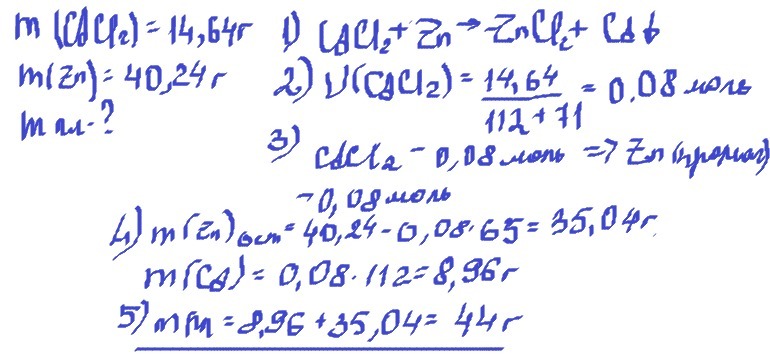 m (CdCl₂) = 14,64г
m(Zn) = 40,24 г
m пл-?
1) CdCl₂ + Zn → ZnCl₂ + Cd↓
2) ν(CdCl₂) = 14,64 / 112 + 71 = 0.08 моль
3) CdCl₂ - 0,08 моль => Zn (прореаг)
- 0,08 моль
4) m(Zn) ост = 40,24 - 0,08·65 = 35,04г
m(Cd) = 0,08·112 = 8,96г
5) m пл = 8,96 + 35,04 = 44г